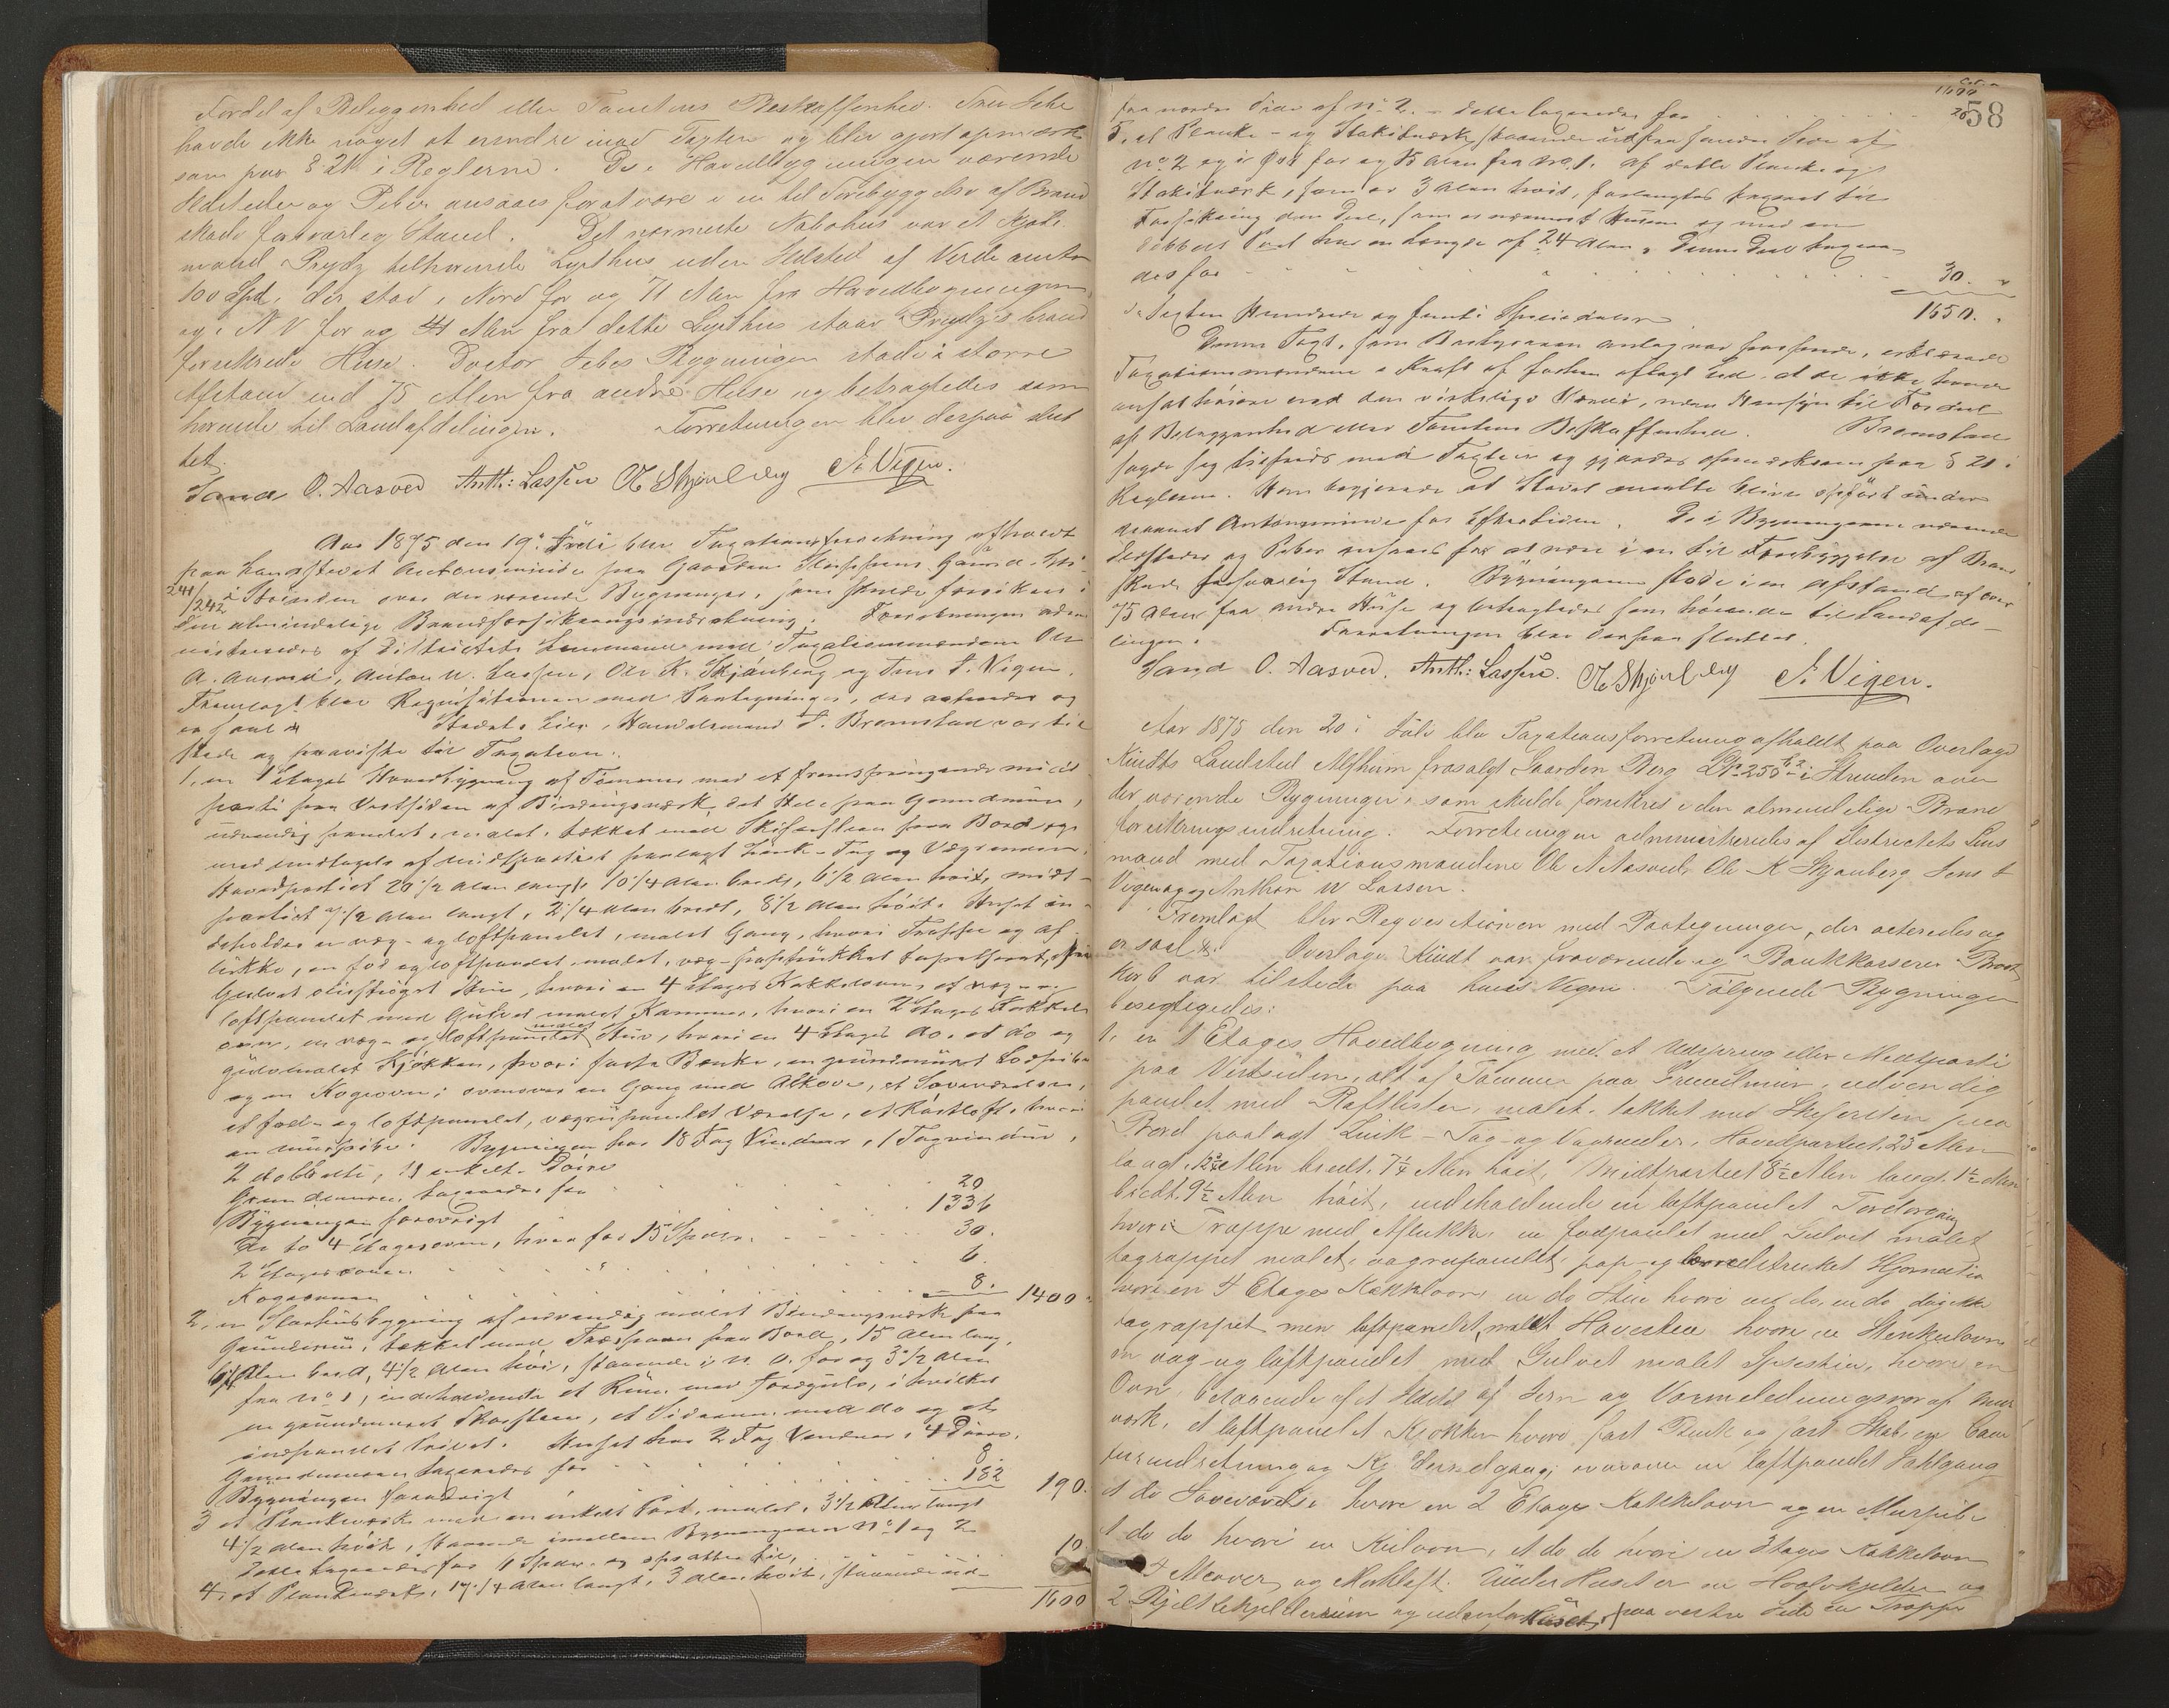 Fordel af Beliggenhed eller Tomtens Beskaffenhed. Fru Sebe
havde ikke noget at erindre imod Taxten og blev gjort opmærk-
som paa § 21 i Reglerne. De i Hovedbygningen værende
Ildsteder og Piber ansaaes for at være i en til Forebyggelse af Brand
skade forsvarlig Stand. Det nærmeste Nabohus var et Kjøb-
mand Prydz tilhørende Lysthus uden Ildsted af Verdi under
100 Spd. der stod i Nord for og 71 Alen fra Hovedbygningen,
og i N V for og 44 Alen fra dette Lysthus staar Prydz's brand
forsikrede Huse. Doctor Sebes Bygninger stode i større
Afstand end 75 Alen fra andre Huse og betragtedes som
hørende til Landafdelingen. Forretningen blev derpaa slut
tet.
Sand O. Aasved Anth: Lassen OK Skjønberg J. Vigen.
Aar 1875 den 19de Juli blev Taxationsforretning afholdt
paa Landstedet Antonsminde paa Gaarden
241/242 i Strinden over der værende Bygninger, som skulde forsikres i
den almindelige Brandforsikringsindretning. Forretningen admi
nistreredes af Districtets Lensmand med Taxationsmændene Ole
A. Aasved, Anton W. Lassen, Ole K. Skjønberg og Jens T. Vigen.
Fremlagt blev Requisitionen med Paategninger, der acteredes og
er saal. Stedets Eier, Handelsmand T. Bremstad var til
stede og paaviste til Taxation:
1, en 1 Etages Hovedbygning af Tømmer med et fremspringende midt
parti paa Vestsiden af Bindingsværk, det Hele paa Grundmuur,
udvendig panelet, malet, tækket med Skifersteen paa Bord og
med undtagelse af midtpartiet paalagt Zink-Tag og Vægrender.
Hovedpartiet 20 1/2 Alen langt, 10 1/4 Alen bredt, 6 1/2 Alen høit, midt-
partiet 7 1/2 Alen langt, 2 1/4 Alen bredt, 8 1/2 Alen høit. Huset in-
deholder en væg- og loftpanelet, malet Gang, hvori Trappe og af-
lukke, en fod og loftpanelet, malet, væg-papstrukket tapetseret,
Gulvet oliestrøget Stue, hvori en 4 Etages Kakkelovn, et væg- og
loftpanelet med Gulvet malet Kammer, hvori en 2 Etages Kakkel
ovn, en væg- og loftpanelet malet Stue, hvori en 4 Etages do, et do og
gulvmalet Kjøkken, hvori faste Bænke, en grundmuret Lodpibe
og en Kogeovn; ovenover en Gang med Alkove, et Soveværelse,
et fod- og loftpanelet, vægrupanelet Værelse, et Mørkloft, hvori
en muurpibe. Bygningen har 18 Fag Vinduer, 1 Tagvindue,
2 dobbelte, 11 enkelte Døre
Grundmuren taxeredes for 20
Bygningen forøvrigt 1336
De to 4 Etagesovne, hver for 15 Spdlr. 30.
2 Etagesovnen 6.
Kogeovnen 8. 1400
2, en Udhusbygning af udvendig malet Bindingsværk paa
Grundmur, tækket med Træspaan paa Bord, 15 Alen lang,
6 Alen bred, 4 1/2 Alen høi, staaende i N. O. for og 3 1/2 Alen
fra No 1, indeholdende et Rum med Jordgulv, i hvilket
en grundmuret Skorsteen, et Siderum med do og et
indpanelet Privet. Huset har 2 Fag Vinduer, 4 Døre.
Grundmuren taxeredes for 8.
Bygningen forøvrigt 182 190.
3 et Plankeværk med en enkelt Port, malet, 3 1/2 Alen langt
4 1/2 Alen høit, staaende imellem Bygningerne No 1 og 2
Dette taxeredes for 11 Spdlr. og opsattes til, 10
4, et Plankeværk, 17 1/4 Alen langt, 3 Alen høit, staaende ud-
1600
58
fra nordre Side af No 2. – dette taxeredes for
5, et Planke- og Stakitværk, staaende ud fra søndre Side af
No 2 og i Øst for og 15 Alen fra No 1. Af dette Planke og
Stakitværk, som er 3 Alen høit, forlangtes taxeret til
Forsikring den Deel, som er nærmest Husene og med en
dobbelt Port har en Længde af 24 Alen. Denne Deel taxere-
des for 30. "
1650. "
er Sexten Hundrede og femti Speciedaler
Denne Taxt, som Bestyreren antog var passende, erklærede
Taxationsmændene i Kraft af forhen aflagt Ed, at de ikke havde
ansat høiere end den virkelige Værdi, uden Hensyn til Fordeel
af Beliggenhed eller Tomtens Beskaffenhed. Bremstad
sagde sig tilfreds med Taxten og gjordes opmærksom paa § 21 i
Reglerne. Han begjærede at Stedet maatte blive opført under
Navnet Antonsminde for Eftertiden. De i Bygningerne værende
Ildsteder og Piber ansaaes for at være i en til Forebyggelse af Brand
skade forsvarlig Stand. Bygningerne stode i en Afstand af over
75 Alen fra andre Huse og betragtedes som hørende til Landafde-
lingen. Forretningen blev derpaa sluttet.
Sand O. Aasved. Anth: Lassen. OK Skjønberg J. Vigen.
Aar 1875 den 20de Juli blev Taxationsforretning afholdt paa Overlæge
Kindts Landsted Alfheim frasolgt Gaarden Berg L No 250 i Strinden over
der værende Bygninger, som skulde forsikres i den almindelige Brand
forsikringsindretning. Forretningen administreredes af Districtets Lens
mand med Taxationsmændene Ole A Aasved, Ole K Skjønberg, Jens T
Vigen og Anthon W Lassen.
Fremlagt blev Requisitionen med Paategninger, der acteredes og
er saal. Overlæge Kindt var fraværende og Bankkasserer
var tilstede paa hans Vegne. Følgende Bygninger
besigtigedes:
1, en 1 Etages Hovedbygning med et Udspring eller Midtparti
paa Vestsiden, alt af Tømmer paa Grundmur, udvendig
panelet med Raftlister, malet, tækket med Skifersten paa
Bord paalagt Zink-Tag- og Vægrender, Hovedpartiet 23 Alen
langt, 12 3/4 Alen bredt, 7 1/4 Alen høit, Midtpartiet 8 1/2 Alen langt, 1 1/2 Alen
bredt, 9 1/2 Alen høit, indeholdende en loftpanelet Fordørgang
hvori Trappe med Aflukke, en fodpanelet med Gulvet malet
malet, vægrupanelet, pap- og lærredstrukket Hjørnestue
hvori en 4 Etages Kakkelovn, en do Stue hvori en do, en do
men loftpanelet, malet Havestue hvori en Stenkulovn
en væg- og loftpanelet med Gulvet malet Spisestue, hvori en
Ovn, bestaaende af et Ildsted af Jern og Varmeledningsrør af Mur
værk, et loftpanelet Kjøkken hvori fast Bænk og fast Skab, en Com
furindretning og Kjøkkenudgang; ovenover en loftpanelet Gang
et do Soveværelse hvori en 2 Etages Kakkelovn og en Murpibe
1 do do hvori en Kulovn, et do do hvori en Etages Kakkelovn
4 Alcover og Mørkloft. Under Huset er en Hvælvkjelder og
2 Bjelkekjelderrum og udenfor Huset, paa vestre Side en Trappe